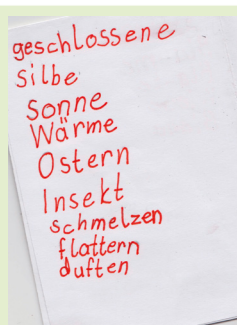 geschlossene
Silbe
Sonne
Wärme
Ostern
Insekt
schmelzen
flattern
duften